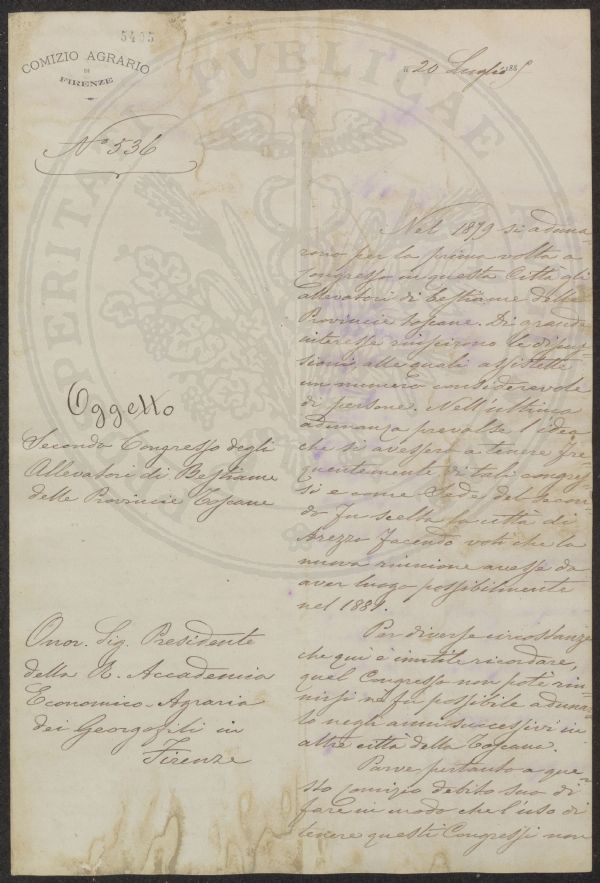 5405
COMIZIO AGRARIO
DI
FIRENZE
N° 536
20 Luglio 1885
Oggetto
Secondo Congresso degli
Allevatori di Bestiame
delle Provincie Toscane
Onor. Sig. Presidente
della R. Accademia
Economico-Agraria
dei Georgofili in
Firenze
Nel 1879 si aduna-
rono per la prima volta a
Congresso in questa Città gli
allevatori di bestiame delle
Provincie toscane. Di grande
interesse riuscirono le discus-
sioni, alle quali assistette
un numero considerevole
di persone. Nell'ultima
adunanza prevalse l'idea
che si avessero a tenere fre-
quentemente di tali congres-
si e come Sede del Secon-
do fu scelta la città di
Arezzo facendo voti che la
nuova riunione avesse da
aver luogo possibilmente
nel 1881.
Per diverse circostanze
che qui è inutile ricordare,
quel Congresso non potè riu-
nirsi nè fu possibile adunar-
lo negli anni successivi in
altre città della Toscana.
Parve pertanto a que-
sto Comizio debito suo di
fare in modo che l'uso di
tenere questi Congressi non
PROSPERITATI PUBLICAE